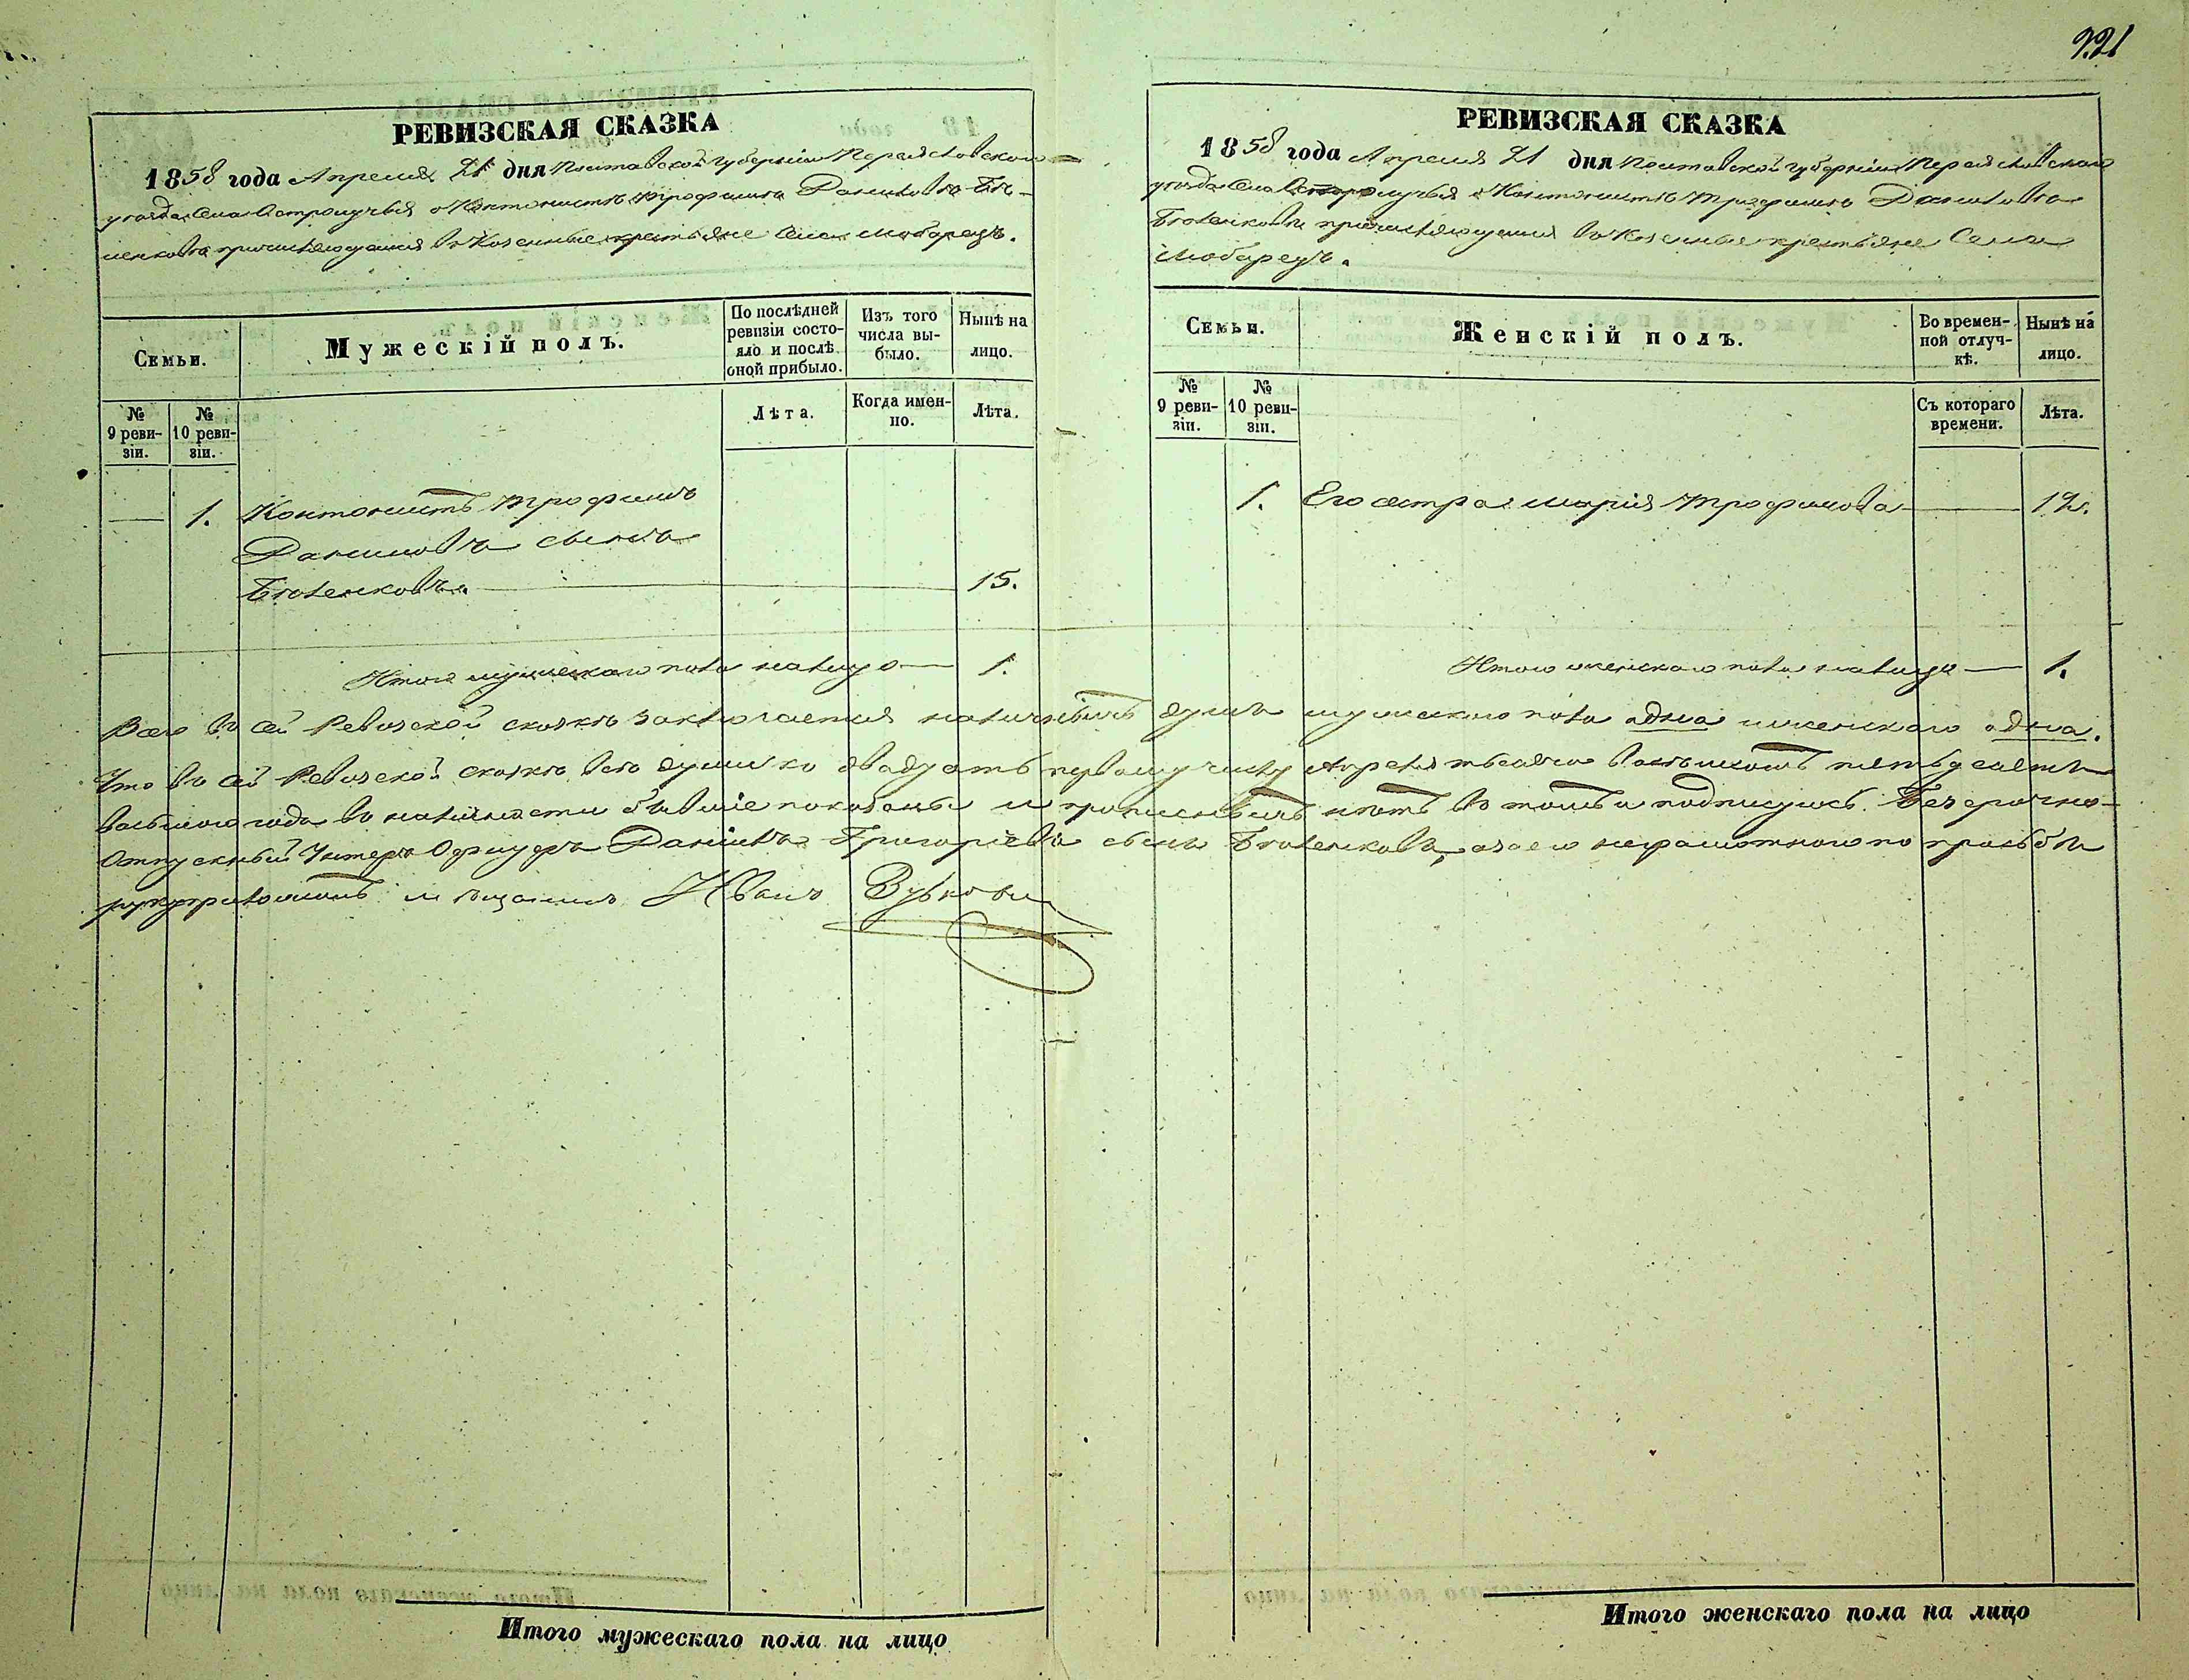 221
РЕВИЗСКАЯ СКАЗКА
1858 года Апреля 21 дня Полтавской Губернии Переясловскаго
уезда Села Остролучья о Кантонисте Трофиме Данилове Бѣ-
ленкове причисляющемся в Козенные крестьяне Села
Семьи.
Мужескій полъ.
По послѣдней ревизіи состояло и послѣ оной прибыло.
Изъ того числа выбыло.
Нынѣ на лицо.
№ 9 ревизіи.
№ 10 ревизіи.
Лѣта.
Когда именно.
Лѣта.
1. Кантонистъ Трофимъ
Даниловъ сынъ
15.
Итого мужескаго пола налицо — 1.
РЕВИЗСКАЯ СКАЗКА
1858 года Апреля 21 дня Полтавской Губернии Переясловскаго
уезда Села Остролучья о Кантонисте Трофиме Данилове
причисляющемся в Козенные крестьяне Села
Семьи.
Женскій полъ.
Во временной отлучкѣ.
Нынѣ на лицо.
№ 9 ревизіи.
№ 10 ревизіи.
Съ котораго времени.
Лѣта.
1. Его сестра Марія Трофимова — 12.
Итого женскаго пола налицо — 1.
Всего в сей Ревизской сказке заключается наличныхъ душъ мужескаго пола одна женскаго одна.
Что в сей Ревизской сказке все души ко двадцать первому числу Апреля тысяча восемьсотъ пятьдесятъ
восьмого года в наличности бывшіе показаны и прописныхъ нетъ в томъ и подписуюсь. Безсрочно-
Отпускный Унтеръ Офицеръ Данило Григорьевъ сынъ а за его неграмотного по прозьбе
Иванъ
Итого мужескаго пола на лицо
Итого женскаго пола на лицо